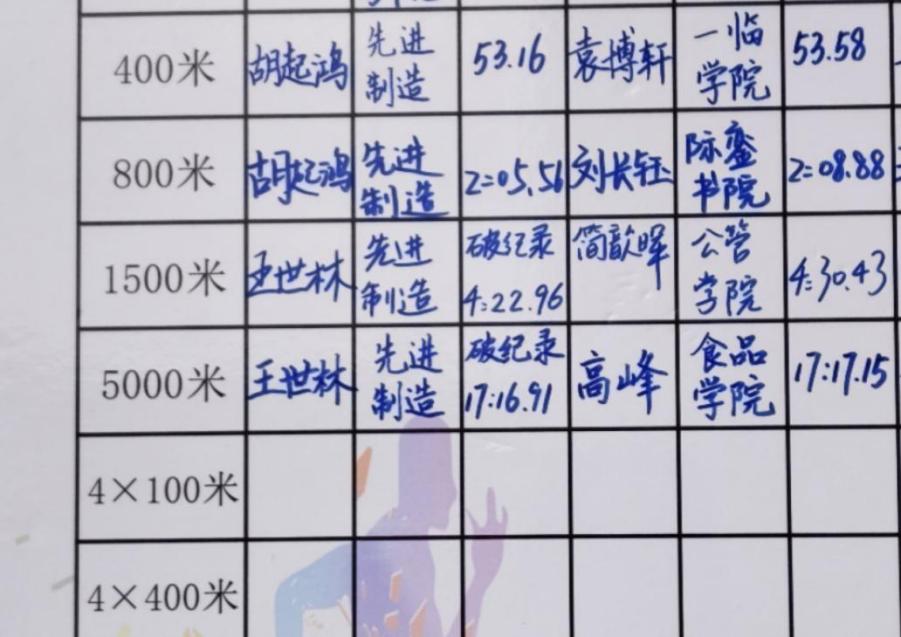 400米 胡起鸿 先进制造 53.16 袁博轩 一临学院 53.58
800米 胡起鸿 先进制造 2:05.56 刘长钰 际銮书院 2:08.88
1500米 王世林 先进制造 破纪录 4:22.96 简歆晖 公管学院 4:30.43
5000米 王世林 先进制造 破纪录 17:16.91 高峰 食品学院 17:17.15
4×100米
4×400米